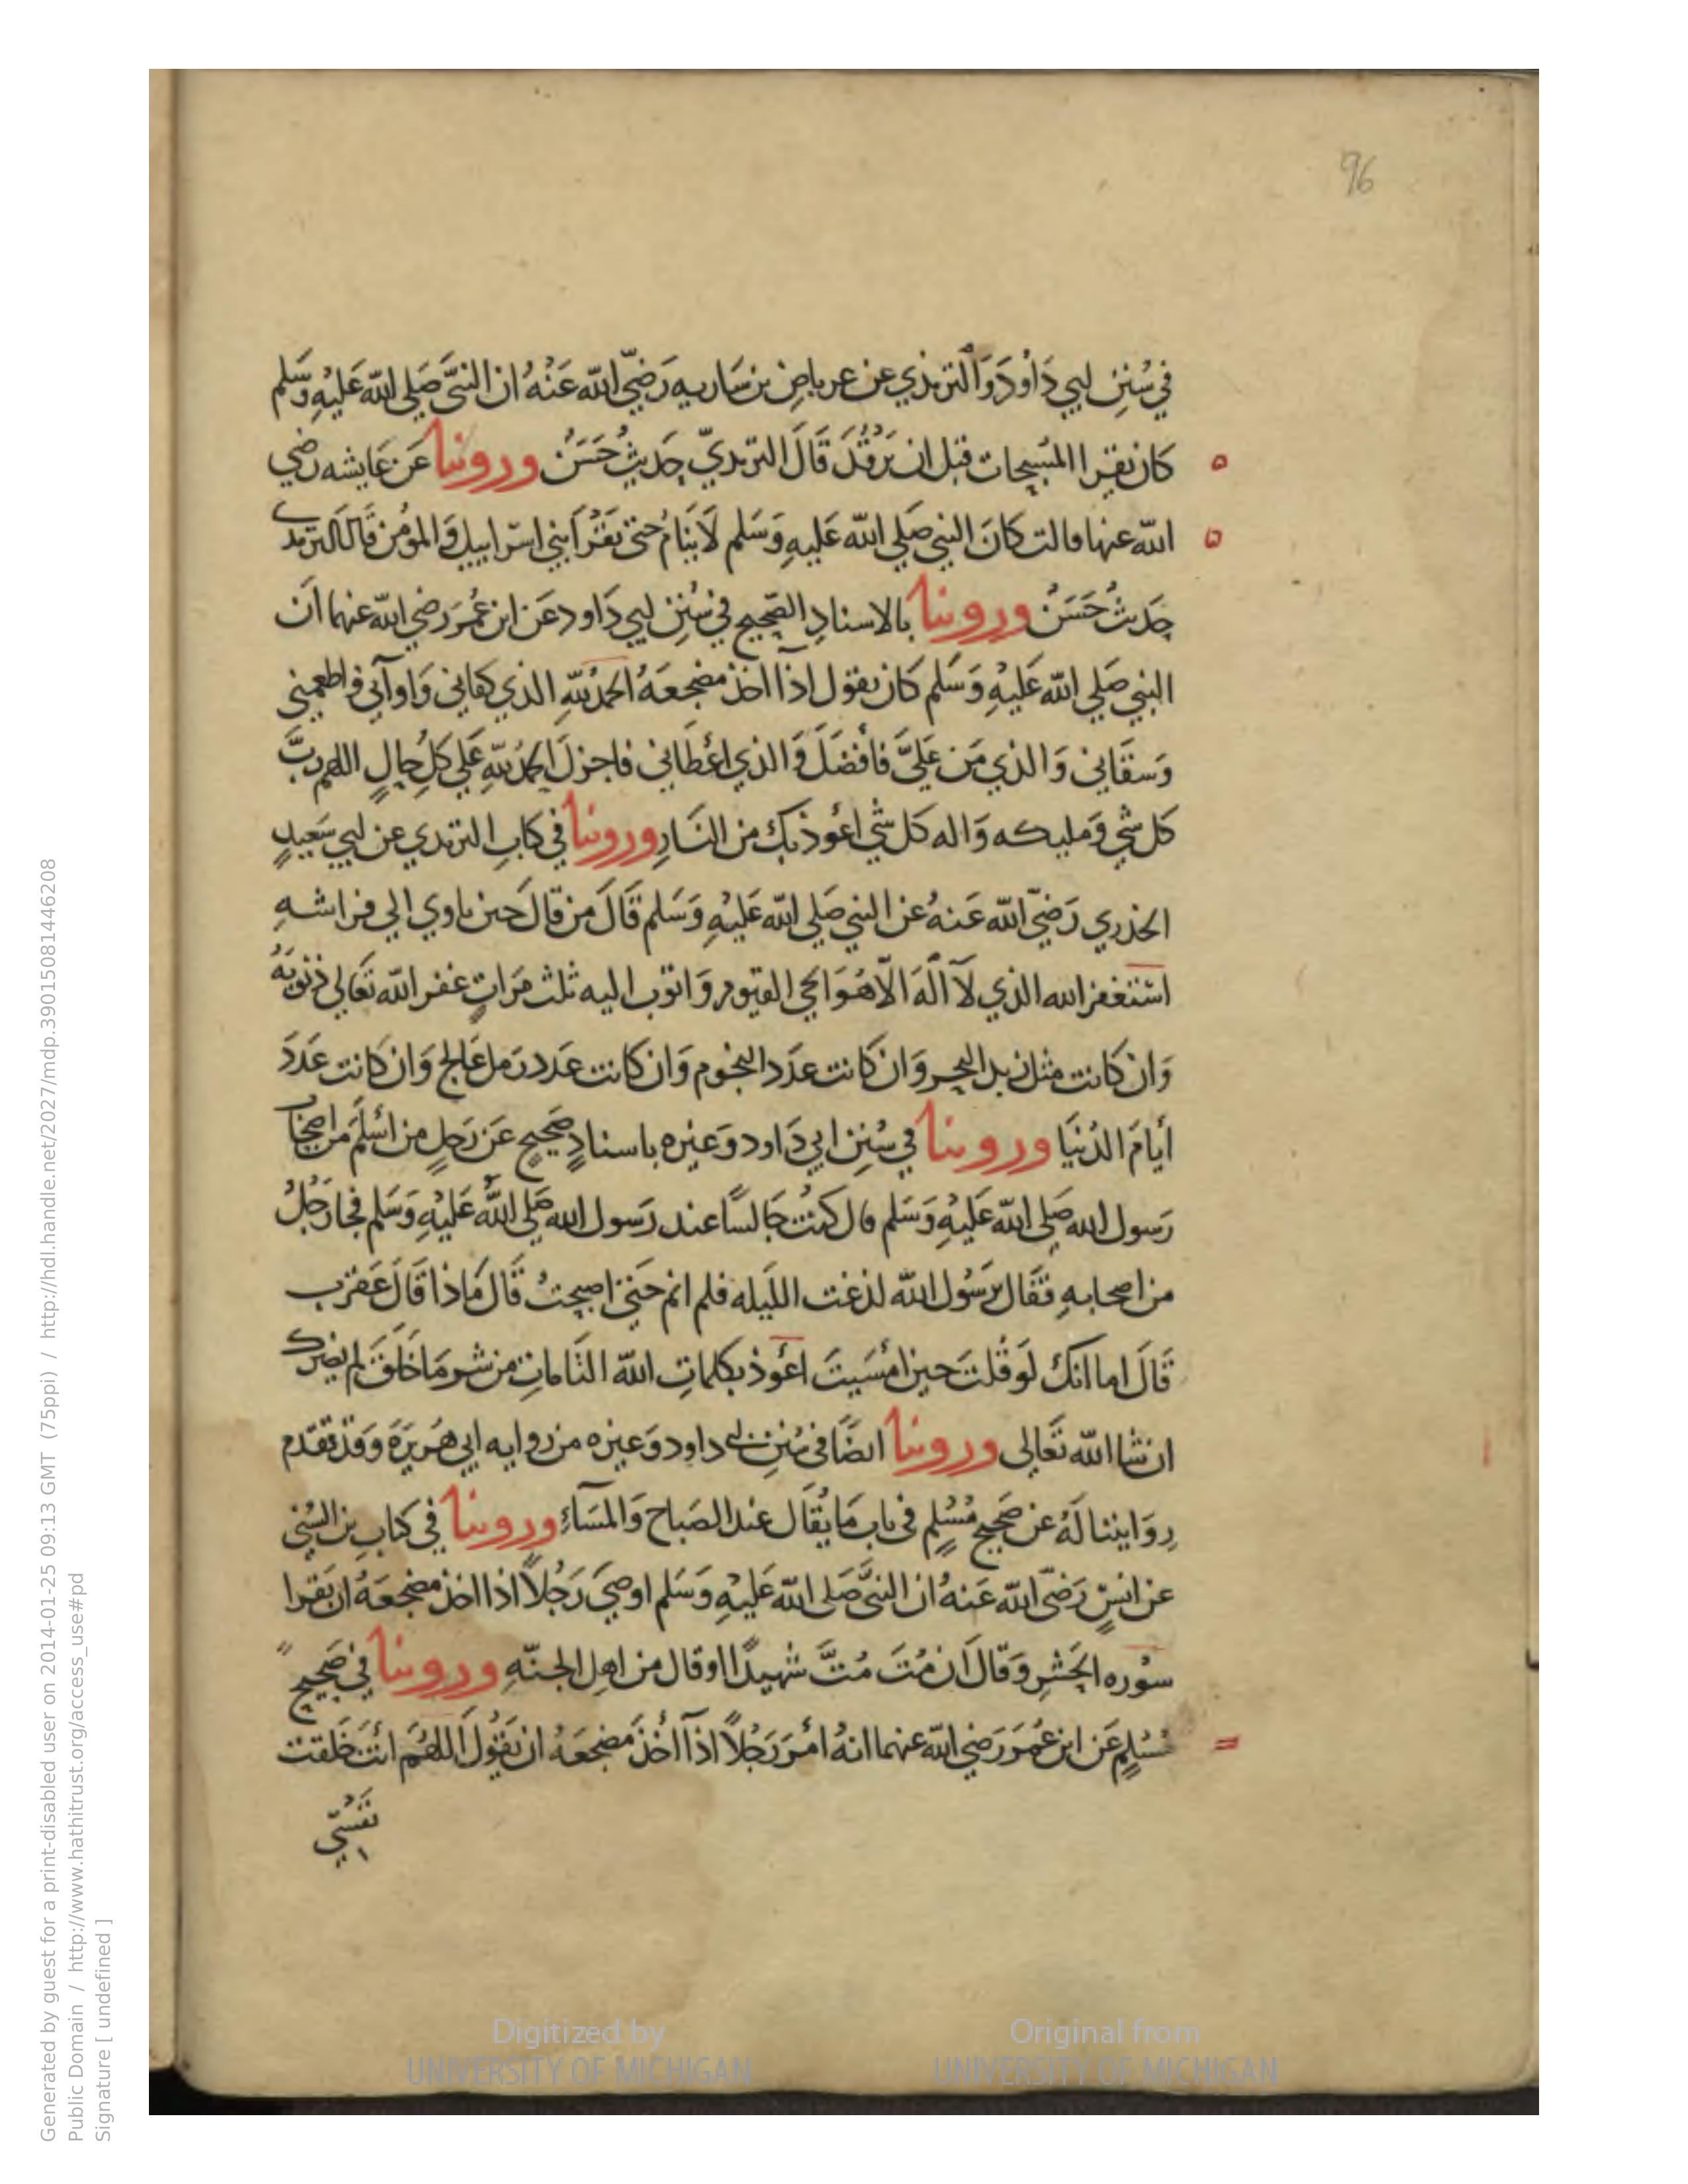 96
في سُنَنِ ابي دَاوُدَ وَالترمذي عن عرباض بن سَاريه رَضيَ الله عَنْهُ ان النبيَّ صَلي الله عَليْهِ وَسَلم
كان يقرا المُسبحات قبل ان يَرْقُدَ قَالَ الترمذيّ حَديثٌ حَسَنٌ وروينا عَن عَايشه رَضي
الله عنها قالت كَانَ النبي صَلي الله عَليهِ وَسَلم لَا يَنَامُ حَتى يَقْرَأ بني اسرَاييل وَالمؤمن قَالَ الترمذي
حَديثٌ حَسَنٌ وروينا بالاسنادِ الصَّحيحِ في سُنَنِ ابي دَاود عَن ابن عُمَرَ رَضي الله عنهما اَن
النبي صَلي الله عَليْهِ وَسَلم كَان يقول اذا اخذ مضجعَهُ الحَمدُ لِلّهِ الذي كفاني وَاوآني واطعمني
وَسقَاني وَالذي مَن عَليَّ فَأفضَلَ وَالذي اعْطَاني فاجزلَ الحَمدُ لِلّهِ عَلي كلِ حَالٍ اللهم ربَّ
كل شي وَمليكه وَاله كل شي اعُوذ بك من النَارِ وروينا في كتابِ الترمذي عن ابي سَعيدٍ
الخذري رَضيَ الله عَنهُ عن النبي صَلي الله عَليْهِ وَسَلم قَالَ من قالَ حين ياوي الي فراشهِ
استغفر الله الذي لآ اله الّا هُوَ الحي القيوم وَاتوب اليه ثلث مَراتٍ غفر الله تَعَالي ذنوبَهُ
وَان كانت مثل زبد البحر وَان كَانت عدَد النجوم وَان كانت عَدد رَمل عَالج وَان كَانت عَدَدَ
أيامَ الدُنيَا وروينا في سُنَنِ ابي دَاود وَغيره باسنادٍ صَحيحٍ عَن رَجلٍ من اسْلَمَ من اصحَاب
رَسول الله صَلي الله عَليْهِ وَسَلم قال كنتُ جَالسًا عند رَسول الله صَلي اللهُ عَليْهِ وَسَلم فجا رَجُلٌ
من اصحابهِ فقَال يرَسُول الله لذغت الليله فلم انم حَتي اصبحتُ قَال مَاذا قَالَ عَقرب
قَالَ اما انك لَو قلتَ حين امْسَيتَ اعُوذ بكلماتِ الله التَامات من شر مَا خَلقَ لم يضرك
ان شا الله تَعَالي وروينا ايضًا في سُنَنِ ابي داود وَغيره من روايه ابي هُرَيرَة وَقد تقدم
رِوَايتنا لَهُ عن صَحيحٍ مُسْلِمٍ في باب مَا يُقَال عند الصَباح وَالمسَآءِ وروينا في كتابِ بن السُنِي
عن انسٍ رَضيَ الله عَنهُ ان النبيَّ صَلي الله عَليْهِ وَسَلم اوصي رَجُلاً اذا اخذ مضجعَهُ ان يَقرا
سوره الحَشرِ وَقالَ ان مُتَ مُتَّ شهيدًا او قال من اهل الجنّهِ وروينا في صَحيحِ
مُسْلِمٍ عَن ابن عُمَرَ رَضي الله عنهما انهُ امَرَ رَجُلاً اذآ اخَذَ مَضجَعَهُ ان يَقُولَ اللهُمَ انتَ خَلقت
نَفْسِي
Generated by guest for a print-disabled user on 2014-01-25 09:13 GMT (75ppi) / http://hdl.handle.net/2027/mdp.39015081446208
Public Domain / http://www.hathitrust.org/access_use#pd
Signature [ undefined ]
Digitized by
UNIVERSITY OF MICHIGAN
Original from
UNIVERSITY OF MICHIGAN